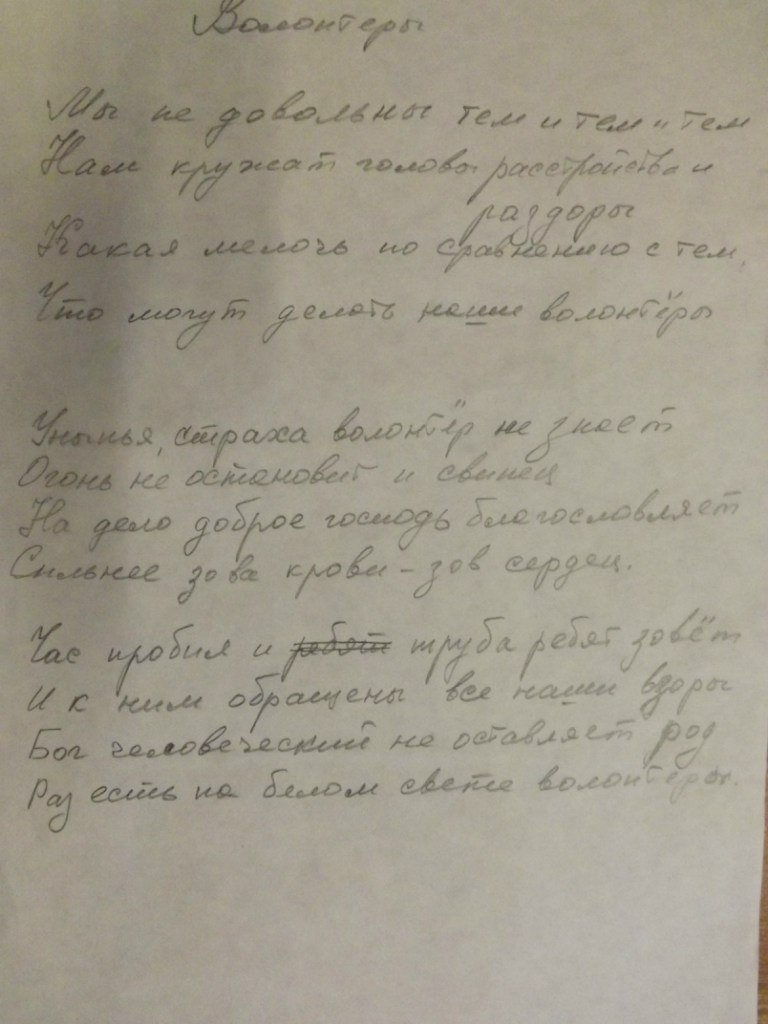 Волонтеры
Мы не довольны тем и тем и тем
Нам кружат головы расстройства и
раздоры
Какая мелочь по сравнению с тем,
Что могут делать наши волонтёры
Унынья, страха волонтёр не знает
Огонь не остановит и свинец
На дело доброе господь благословляет
Сильнее зова крови - зов сердец.
Час пробил и ребят труба ребят зовёт
И к ним обращены все наши взоры
Бог человеческий не оставляет род
Раз есть на белом свете волонтёры.